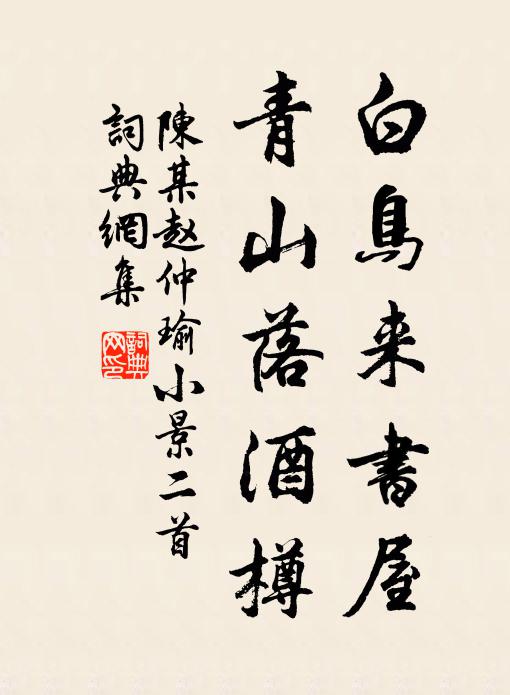 白鳥来書屋
青山落酒樽
陳某赵仲瑜小景二首
詞典網集
詞典
网印